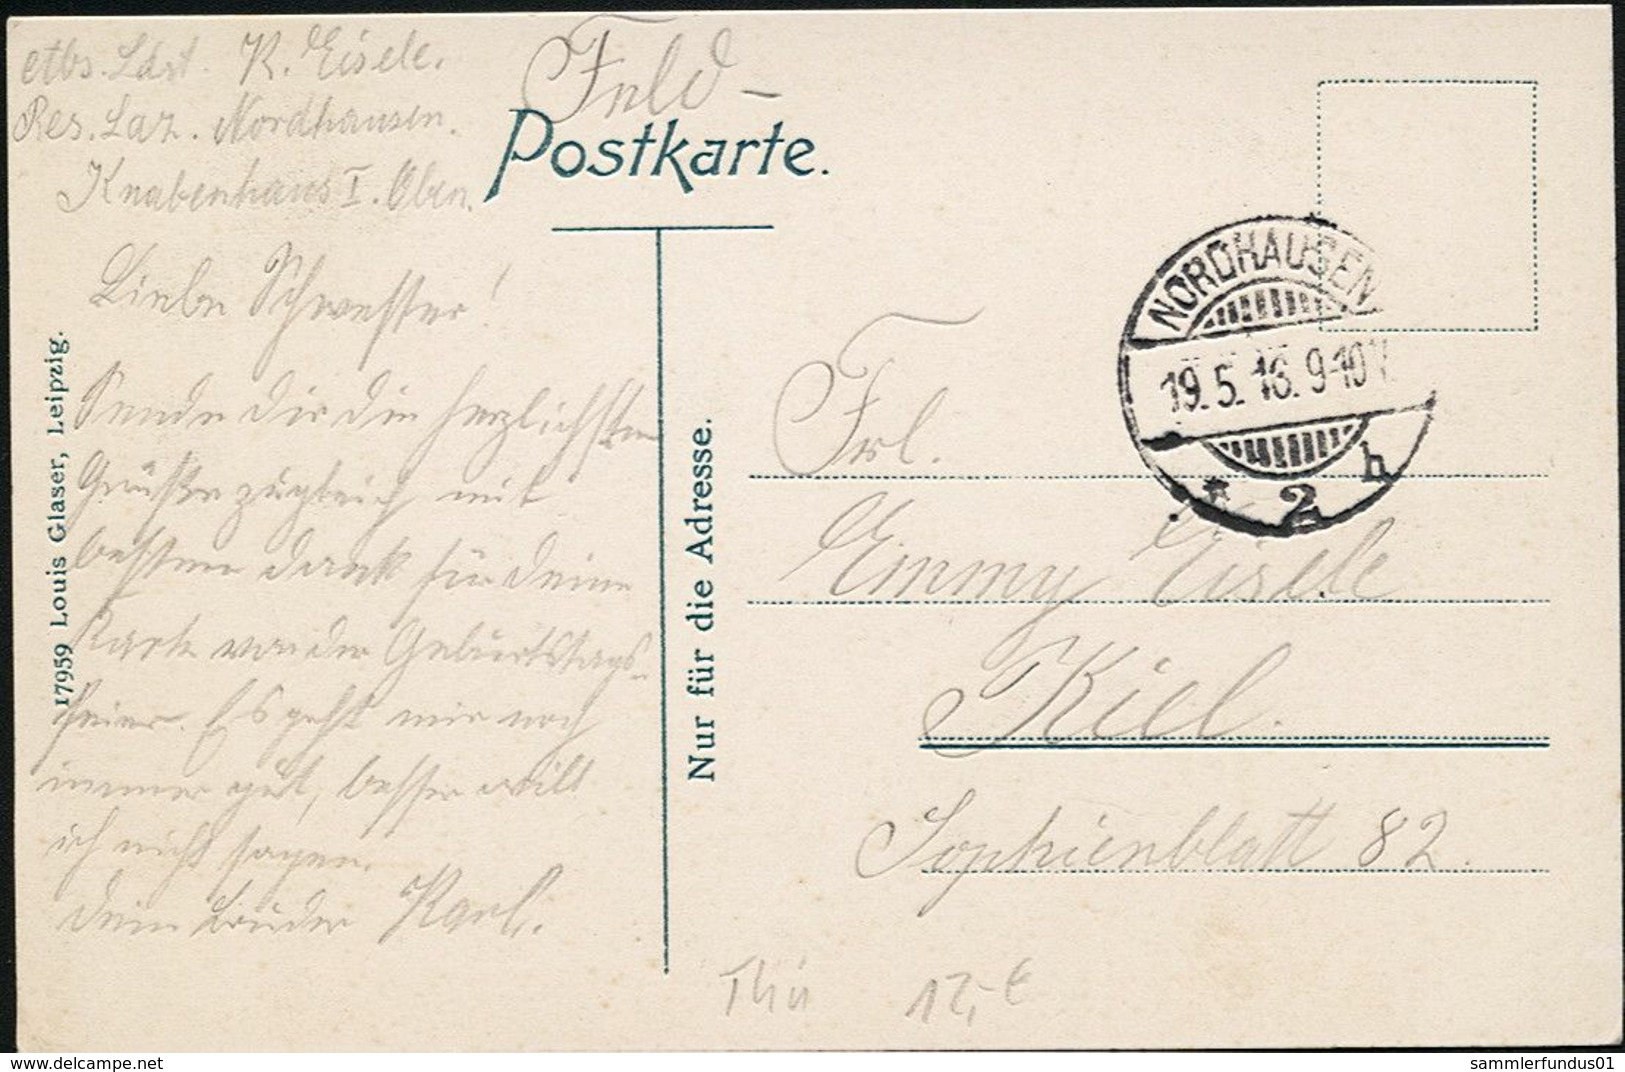 Ldst. K. Eisele.
Res. Laz. Nordhausen.
Knabenhaus I. Oben.
Feld-
Postkarte.
Liebe Schwester!
Sende Dir die herzlichsten
Grüße zugleich mit
bestem Dank für Deine
Karte von der Geburtstags-
feier. Es geht mir noch
immer gut, besser will
ich nicht sagen.
Dein Bruder Karl.
17959 Louis Glaser, Leipzig.
Nur für die Adresse.
NORDHAUSEN
19.5.16.9-10V.
* 2 h
Frl.
Emmy Eisele
Kiel.
Sophienblatt 82.
Thü 12,-€
http://www.delcampe.net
sammlerfundus01